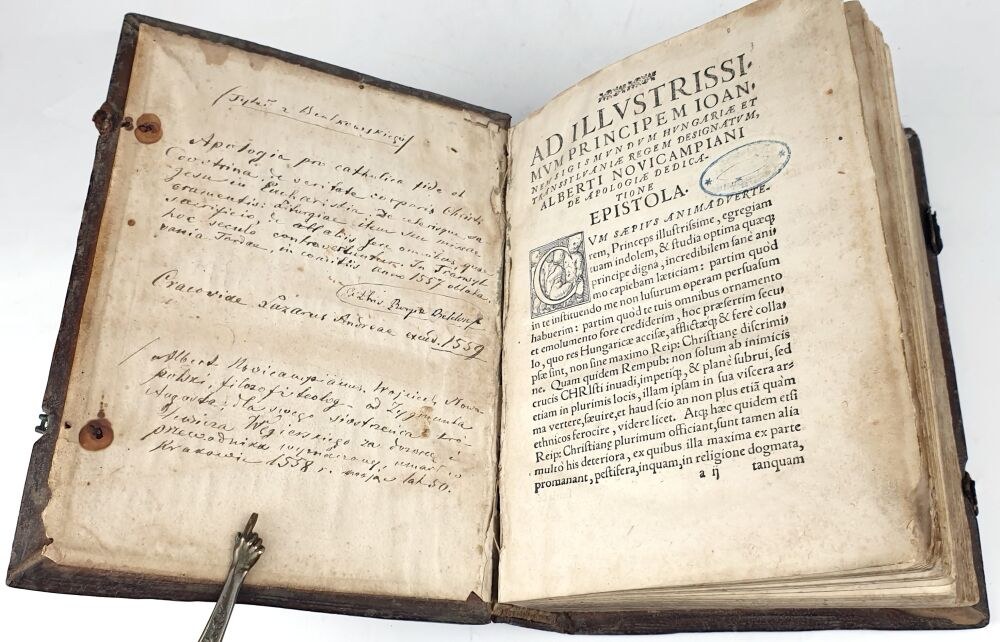 (Tytuł z Bentkowskiego)
Apologia pro catholica fide et
Doctrina, de veritate corporis Christi
Jesu in Eucharistia. De
sacrificio, & aliis fere omnibus, quae
hoc seculo controvertuntur. In Transyl-
vania Turdae in comitiis anno 1557
Cracoviae Lazarus Andreae excus. 1559
Albert Novicampianus, Wojciech Nowo-
polski, filozof i teolog od Zygmunta
Augusta dla swego siostrzeńca kró-
lewicza Węgierskiego za dozorcę i
przewodnika wyznaczony, umarł w
Krakowie 1558 r. mając lat 50.
AD ILLVSTRISSI-
MVM PRINCIPEM IOAN-
NEM SIGISMVNDVM HVNGARIÆ ET
TRANSSILVANIÆ REGEM DESIGNATVM,
ALBERTI NOVICAMPIANI
DE APOLOGIÆ DEDICA-
TIONE
EPISTOLA.
CVM SÆPIVS ANIMADVERTE-
rem, Princeps illustrissime, egregiam
tuam indolem, & studia optima quæq;
principe digna, incredibilem sanè ani-
mo capiebam læticiam: partim quòd
in te instituendo me non lusurum operam persuasum
habuerim: partim quòd te tuis omnibus ornamento
et emolumento fore crediderim, hoc præsertim secu-
lo, quo res Hungaricæ accisæ, afflictæq; & ferè colla-
psæ sint, non sine maximo Reip: Christianę discrimi-
ne. Quam quidem Rempub: non solum ab inimicis
crucis CHRIsti inuadi, impetiq;, & planè subrui, sed
etiam in plurimis locis, illam ipsam in sua viscera ar-
ma vertere, sæuire, et haud scio an non plus etiā quàm
ethnicos ferocire, videre licet. Atq; hæc quidem etsi
Reip: Christianę plurimum officiant, sunt tamen alia
multò his deteriora, ex quibus illa maxima ex parte
promanant, pestifera, inquam, in religione dogmata,
a ij tanquam